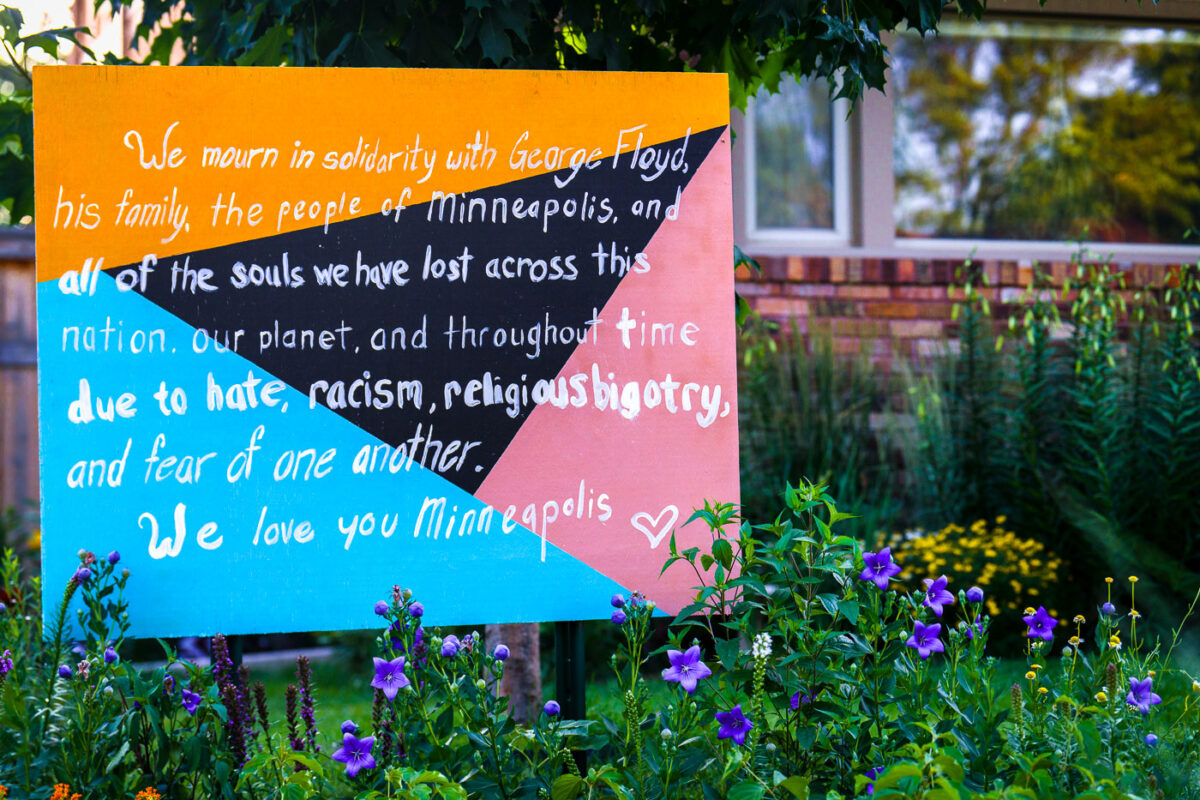 We mourn in solidarity with George Floyd,
his family, the people of Minneapolis, and
all of the souls we have lost across this
nation, our planet, and throughout time
due to hate, racism, religious bigotry,
and fear of one another.
We love you Minneapolis ♡